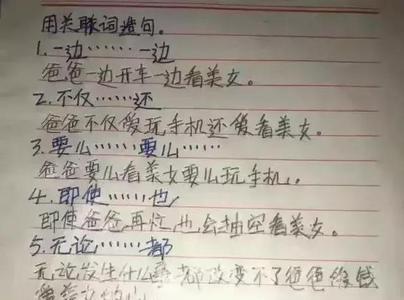 用关联词造句。
1.一边……一边
爸爸一边开车一边看美女。
2.不仅……还
爸爸不仅爱玩手机还爱看美女。
3.要么……要么……
爸爸要么看美女要么玩手机。
4.即使……也
即使爸爸再忙也会抽空看美女。
5.无论……都
无论发生什么事都改变不了爸爸